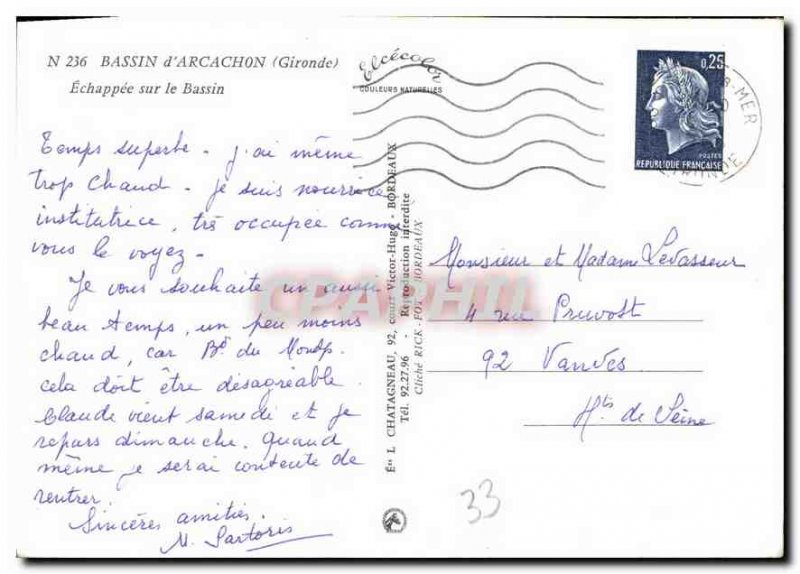 N 236 BASSIN d'ARCACHON (Gironde)
Échappée sur le Bassin
Elcécolor
COULEURS NATURELLES
0,25
POSTES
REPUBLIQUE FRANÇAISE
-MER
GIRONDE
Temps superbe. J'ai même
trop chaud. Je suis nourrice
institutrice, très occupée comme
vous le voyez.
Je vous souhaite un aussi
beau temps, un peu moins
chaud, car Bd du Montp.
cela doit être désagréable
Claude vient samedi et je
repars dimanche. Quand
même je serai contente de
rentrer.
Sincères amitiés.
M. Sartoris
Éts L. CHATAGNEAU, 92, cours Victor-Hugo - BORDEAUX
Tél. 92.27.96 - Reproduction interdite
Cliché RICK-FOT BORDEAUX
Monsieur et Madame Levasseur
4 rue Pruvost
92 Vanves
Hts de Seine
33
CPARHIL